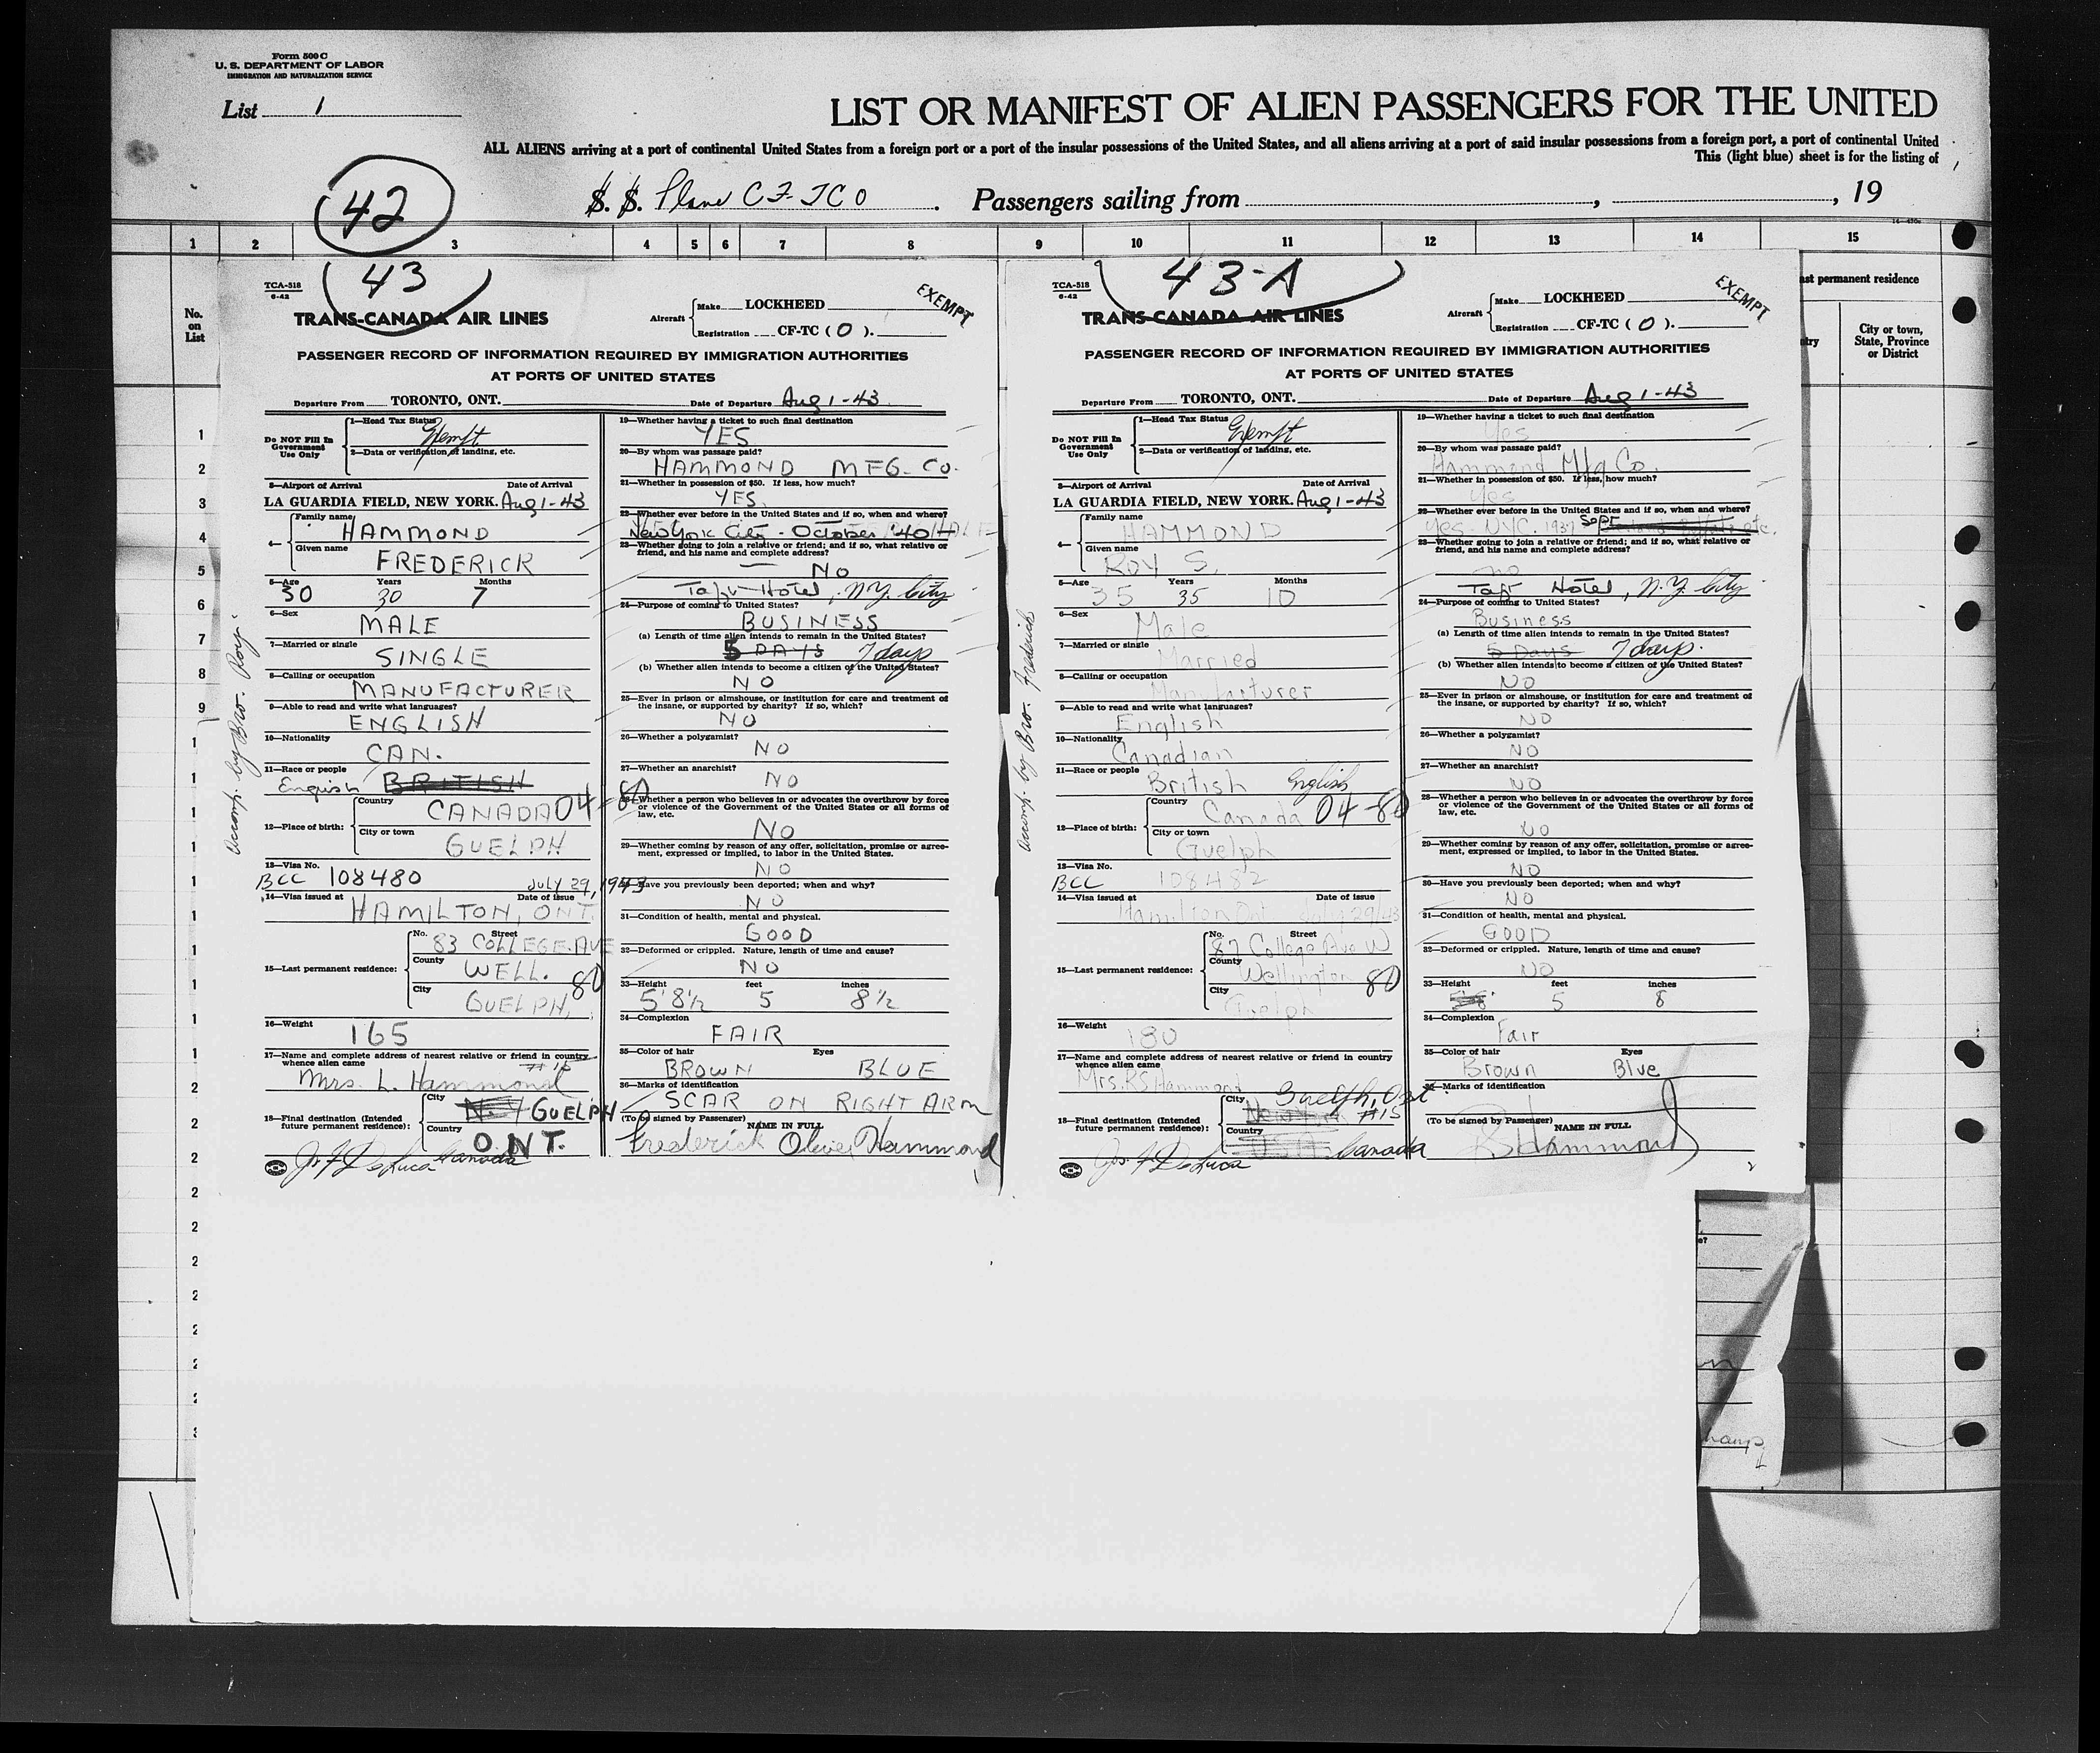 Form 500 C
U. S. DEPARTMENT OF LABOR
IMMIGRATION AND NATURALIZATION SERVICE
List 1
LIST OR MANIFEST OF ALIEN PASSENGERS FOR THE UNITED
ALL ALIENS arriving at a port of continental United States from a foreign port or a port of the insular possessions of the United States, and all aliens arriving at a port of said insular possessions from a foreign port, a port of continental United
This (light blue) sheet is for the listing of
42
S. S. Plane CF-TCO . Passengers sailing from , , 19
1 2 3 4 5 6 7 8 9 10 11 12 13 14 15
No. on List
1
2
3
4
5
6
7
8
9
ast permanent residence
City or town, State, Province or District
43
TCA-518
6-42
TRANS-CANADA AIR LINES
Aircraft
Make LOCKHEED
Registration CF-TC ( O ).
EXEMPT
PASSENGER RECORD OF INFORMATION REQUIRED BY IMMIGRATION AUTHORITIES
AT PORTS OF UNITED STATES
Departure From TORONTO, ONT. Date of Departure Aug 1-43
Do NOT Fill In Government Use Only
1—Head Tax Status
Exempt
2—Data or verification of landing, etc.
3—Airport of Arrival Date of Arrival
LA GUARDIA FIELD, NEW YORK. Aug 1-43
4—
Family name
HAMMOND
Given name
FREDERICK
5—Age Years Months
30 30 7
6—Sex
MALE
7—Married or single
SINGLE
8—Calling or occupation
MANUFACTURER
9—Able to read and write what languages?
ENGLISH
10—Nationality
CAN.
11—Race or people
English BRITISH
12—Place of birth:
Country
CANADA 04-80
City or town
GUELPH
13—Visa No.
BCC 108480 July 29, 1943
14—Visa issued at Date of issue
HAMILTON, ONT.
15—Last permanent residence:
No. Street
83 COLLEGE. AVE
County
WELL. 80
City
GUELPH,
16—Weight
165
17—Name and complete address of nearest relative or friend in country whence alien came
#15
Mrs. L. Hammond
18—Final destination (Intended future permanent residence):
City
N.Y GUELPH
Country
ONT.
Canada
Jos. F. DeLuca
Accomp. by Bro. Roy.
19—Whether having a ticket to such final destination
YES
20—By whom was passage paid?
HAMMOND MFG. CO.
21—Whether in possession of $50. If less, how much?
YES.
22—Whether ever before in the United States and if so, when and where?
New York City - October 40
23—Whether going to join a relative or friend; and if so, what relative or friend, and his name and complete address?
— NO
Taft Hotel, N.Y. City
24—Purpose of coming to United States?
BUSINESS
(a) Length of time alien intends to remain in the United States?
5 DAYS 7 days
(b) Whether alien intends to become a citizen of the United States?
NO
25—Ever in prison or almshouse, or institution for care and treatment of the insane, or supported by charity? If so, which?
NO
26—Whether a polygamist?
NO
27—Whether an anarchist?
NO
28—Whether a person who believes in or advocates the overthrow by force or violence of the Government of the United States or all forms of law, etc.
NO
29—Whether coming by reason of any offer, solicitation, promise or agreement, expressed or implied, to labor in the United States.
NO
30—Have you previously been deported; when and why?
NO
31—Condition of health, mental and physical.
GOOD
32—Deformed or crippled. Nature, length of time and cause?
NO
33—Height feet inches
5' 8½ 5 8½
34—Complexion
FAIR
35—Color of hair Eyes
BROWN BLUE
36—Marks of identification
SCAR ON RIGHT ARM
(To be signed by Passenger) NAME IN FULL
Frederick Oliver Hammond
43-A
TCA-518
6-42
TRANS-CANADA AIR LINES
Aircraft
Make LOCKHEED
Registration CF-TC ( O ).
EXEMPT
PASSENGER RECORD OF INFORMATION REQUIRED BY IMMIGRATION AUTHORITIES
AT PORTS OF UNITED STATES
Departure From TORONTO, ONT. Date of Departure Aug 1-43
Do NOT Fill In Government Use Only
1—Head Tax Status
Exempt
2—Data or verification of landing, etc.
3—Airport of Arrival Date of Arrival
LA GUARDIA FIELD, NEW YORK. Aug 1-43
4—
Family name
HAMMOND
Given name
ROY S.
5—Age Years Months
35 35 10
6—Sex
Male
7—Married or single
Married
8—Calling or occupation
Manufacturer
9—Able to read and write what languages?
English
10—Nationality
Canadian
11—Race or people
British English
12—Place of birth:
Country
Canada 04-80
City or town
Guelph
13—Visa No.
BCC 108482
14—Visa issued at Date of issue
Hamilton Ont July 29/43
15—Last permanent residence:
No. Street
87 College Ave W
County
Wellington 80
City
Guelph
16—Weight
180
17—Name and complete address of nearest relative or friend in country whence alien came
Mrs. R S Hammond
18—Final destination (Intended future permanent residence):
City
Guelph, Ont
New York #15
Country
U.S.A. Canada
Jos. F. DeLuca
Accomp. by Bro. Frederick
19—Whether having a ticket to such final destination
Yes
20—By whom was passage paid?
Hammond Mfg Co.
21—Whether in possession of $50. If less, how much?
Yes
22—Whether ever before in the United States and if so, when and where?
Yes - NYC. 1937 Sept etc.
23—Whether going to join a relative or friend; and if so, what relative or friend, and his name and complete address?
no
Taft Hotel, N.Y. City
24—Purpose of coming to United States?
Business
(a) Length of time alien intends to remain in the United States?
5 Days 7 days.
(b) Whether alien intends to become a citizen of the United States?
NO
25—Ever in prison or almshouse, or institution for care and treatment of the insane, or supported by charity? If so, which?
NO
26—Whether a polygamist?
NO
27—Whether an anarchist?
NO
28—Whether a person who believes in or advocates the overthrow by force or violence of the Government of the United States or all forms of law, etc.
NO
29—Whether coming by reason of any offer, solicitation, promise or agreement, expressed or implied, to labor in the United States.
NO
30—Have you previously been deported; when and why?
NO
31—Condition of health, mental and physical.
GOOD
32—Deformed or crippled. Nature, length of time and cause?
NO
33—Height feet inches
5 8
34—Complexion
Fair
35—Color of hair Eyes
Brown Blue
36—Marks of identification
(To be signed by Passenger) NAME IN FULL
RS Hammond